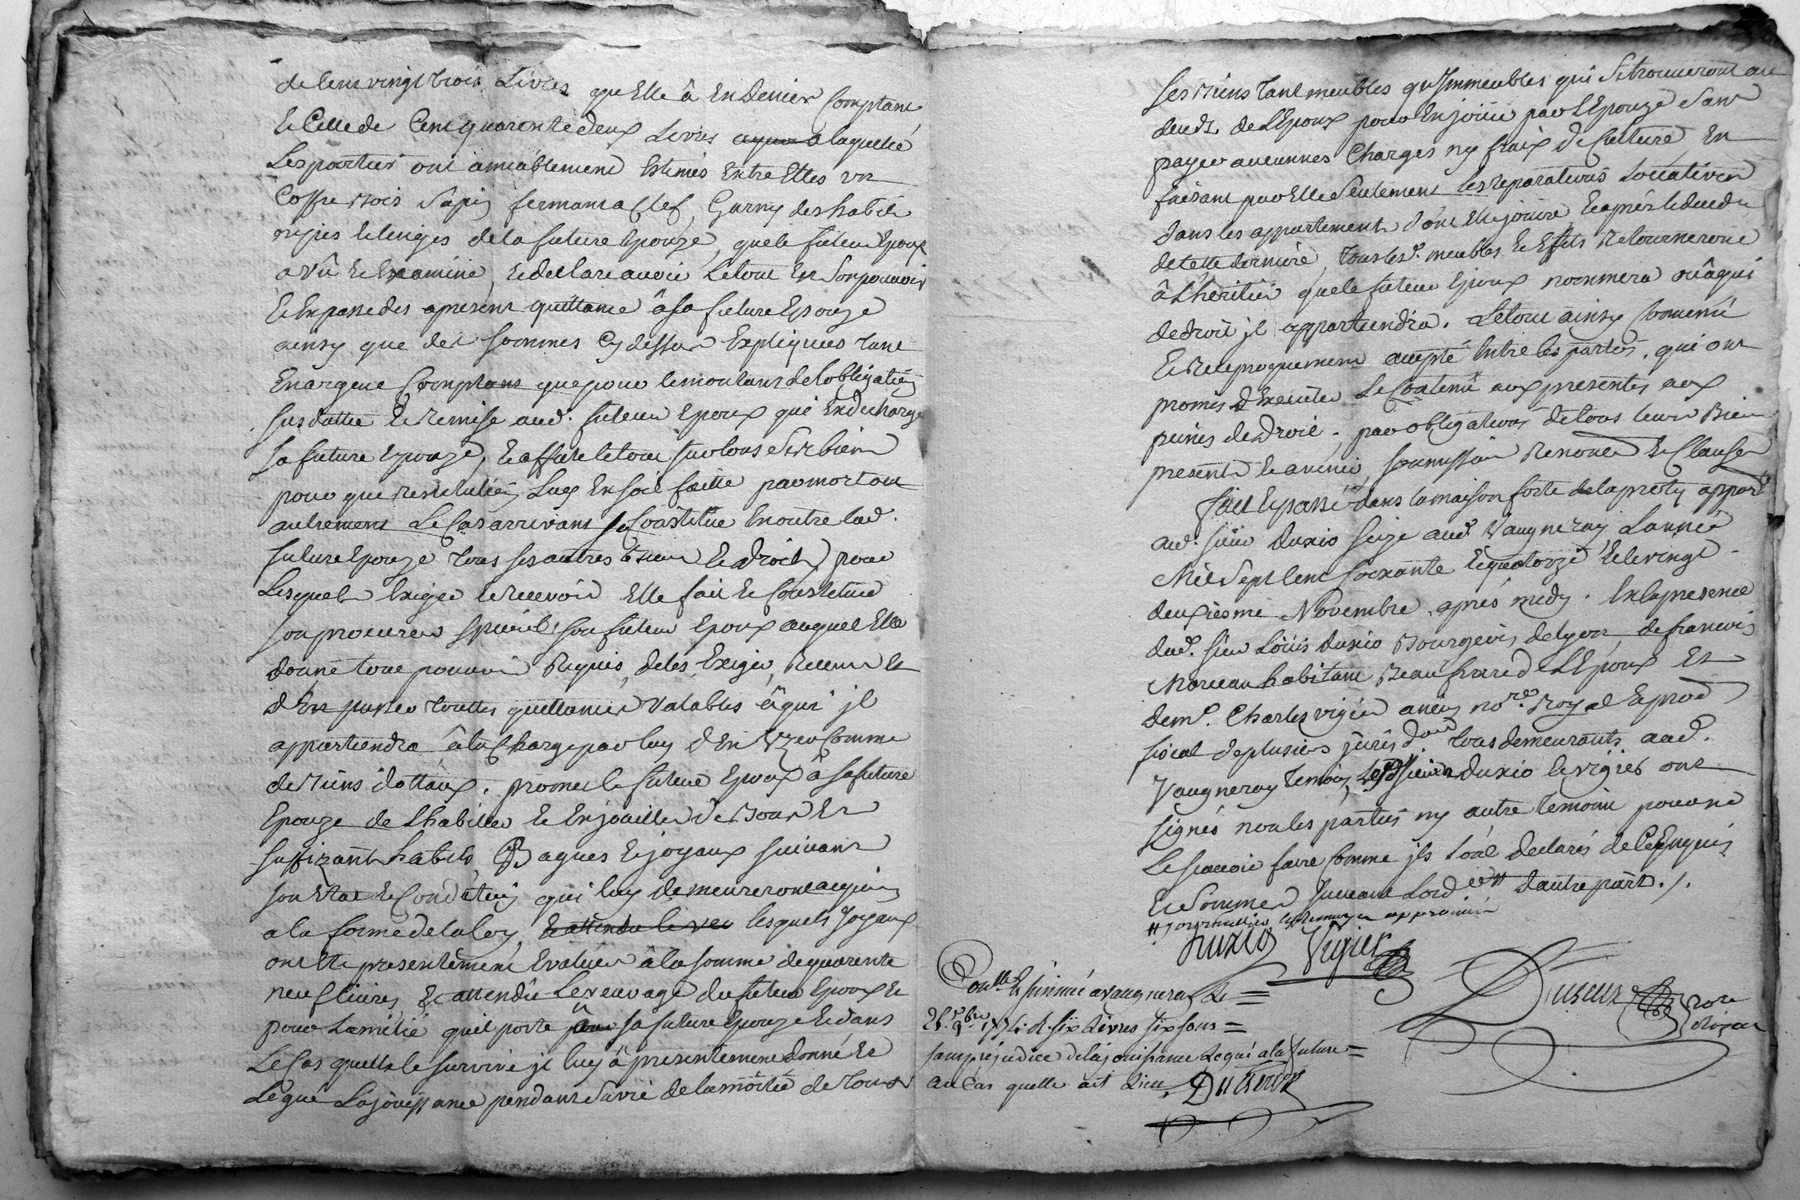 de Cent vingt trois Livres quElle â En Denier Comptant
Et Celle de Cent quarente deux Livres a laquelle
Les parties ont amiablement Estimés Entre Elles un
Coffre Bois Sapin fermant a Clef, Garny des habits
nypes et linges de la future Epouze, que le futeur Epoux
a Vû et Examiné, et declare avoir Letout En Son pouvoir
Et En passe des apresent quittance â Sa future Epouze
ainsy que des Sommes Cy dessus Expliquées tant
En argent Comptant que pour le montant de Lobligation
Sus dattée et remise aud. futeur Epoux qui En decharge
Sa future Epouze, Et affecte le tout Sur tous Ses biens
pour que restitution Luy En Soit faitte par mort ou
autrement Le Cas arrivant Se Constitue En outre lad.
future Epouze tous Ses autres biens et droits pour
Lesquels Exiger et recevoir Elle fait et Constitue
Son procureur Spécial Son futeur Epoux auquel Elle
donne tout pouvoir Requis, de les Exiger, Recevoir Et
dEn passer touttes quittances Valables â qui jl
appartiendra â la Charge par luy dEn Uzer Comme
de Biens dottaux. promet le futeur Epoux â Sa future
Epouze de Lhabiller et Enjoailler de Bons Et
Suffizants habits, Bagues et joyaux Suivant
Son Etat et Condition qui luy demeureront acquis
a la forme de la loy, et attendu le veu lesquels Joyaux
ont Eté presentement Evalués â la Somme de quarente
neuf livres, Et attendu Le veuvage du futeur Epoux et
pour Lamitié quil porte â Sa future Epouze Et dans
Le Cas quelle le Survive jl luy â presentement donné Et
Legué La joüissance pendant Sa vie de la moitié de tous
Ses Biens tant meubles qu'Jmmeubles qui Se trouveront au
deceds de LEpoux pour En joüir par LEpouze Sans
payer aucunnes Charges ny fraix de Culture En
faisant par Elle Seulement les reparations Locatives
dans les appartements dont Elle joüira Et après le deceds
de cette derniere, tous lesd. meubles et Effets Retourneront
â Lheritier que le futeur Epoux nommera ou â qui
de droit jl appartiendra. Le tout ainsy Convenu
Et reciproquement accepté Entre les parties, qui ont
promis dExecuter Le Contenu aux presentes aux
peines de droit. par obligations de tous leurs Biens
presents et avenir, Soumission Renonc. Et Clauses
Fait et passé dans la maison forte de appart
au. Sieur Duxio Seize aud. Vaugneray Lannée
Mil Sept Cent Soixante Et quatorze Et le vingt
deuxiesme Novembre, après midy. En la presence
dud. Sieur Loüis Duxio Bourgeois de Lyon de francois
Moreau habitant Beaufrere de LEpoux Et
de me. Charles vigier ancien nore. Royal Et procr.
fiscal de plusieurs jurisdons tous demeurants aud.
Vaugneray Temoins, Lesd. Sieurs Duxio et vigier ont
signés non les parties ny autre temoin pour ne
Le Scavoir faire Comme jls Lont declarés de Ce Enquis
Et Sommés Suivant Lord. # dautre part./.
Duxio Vigier
Duserre Nore Royal
Conllé Et Jnsinué a vaugneray Le
25. 9bre 1774. R. Six Livres Six Sous
Sans prejudice de la joüissance Legué a la future
au Cas quelle ait Lieu. Duserre